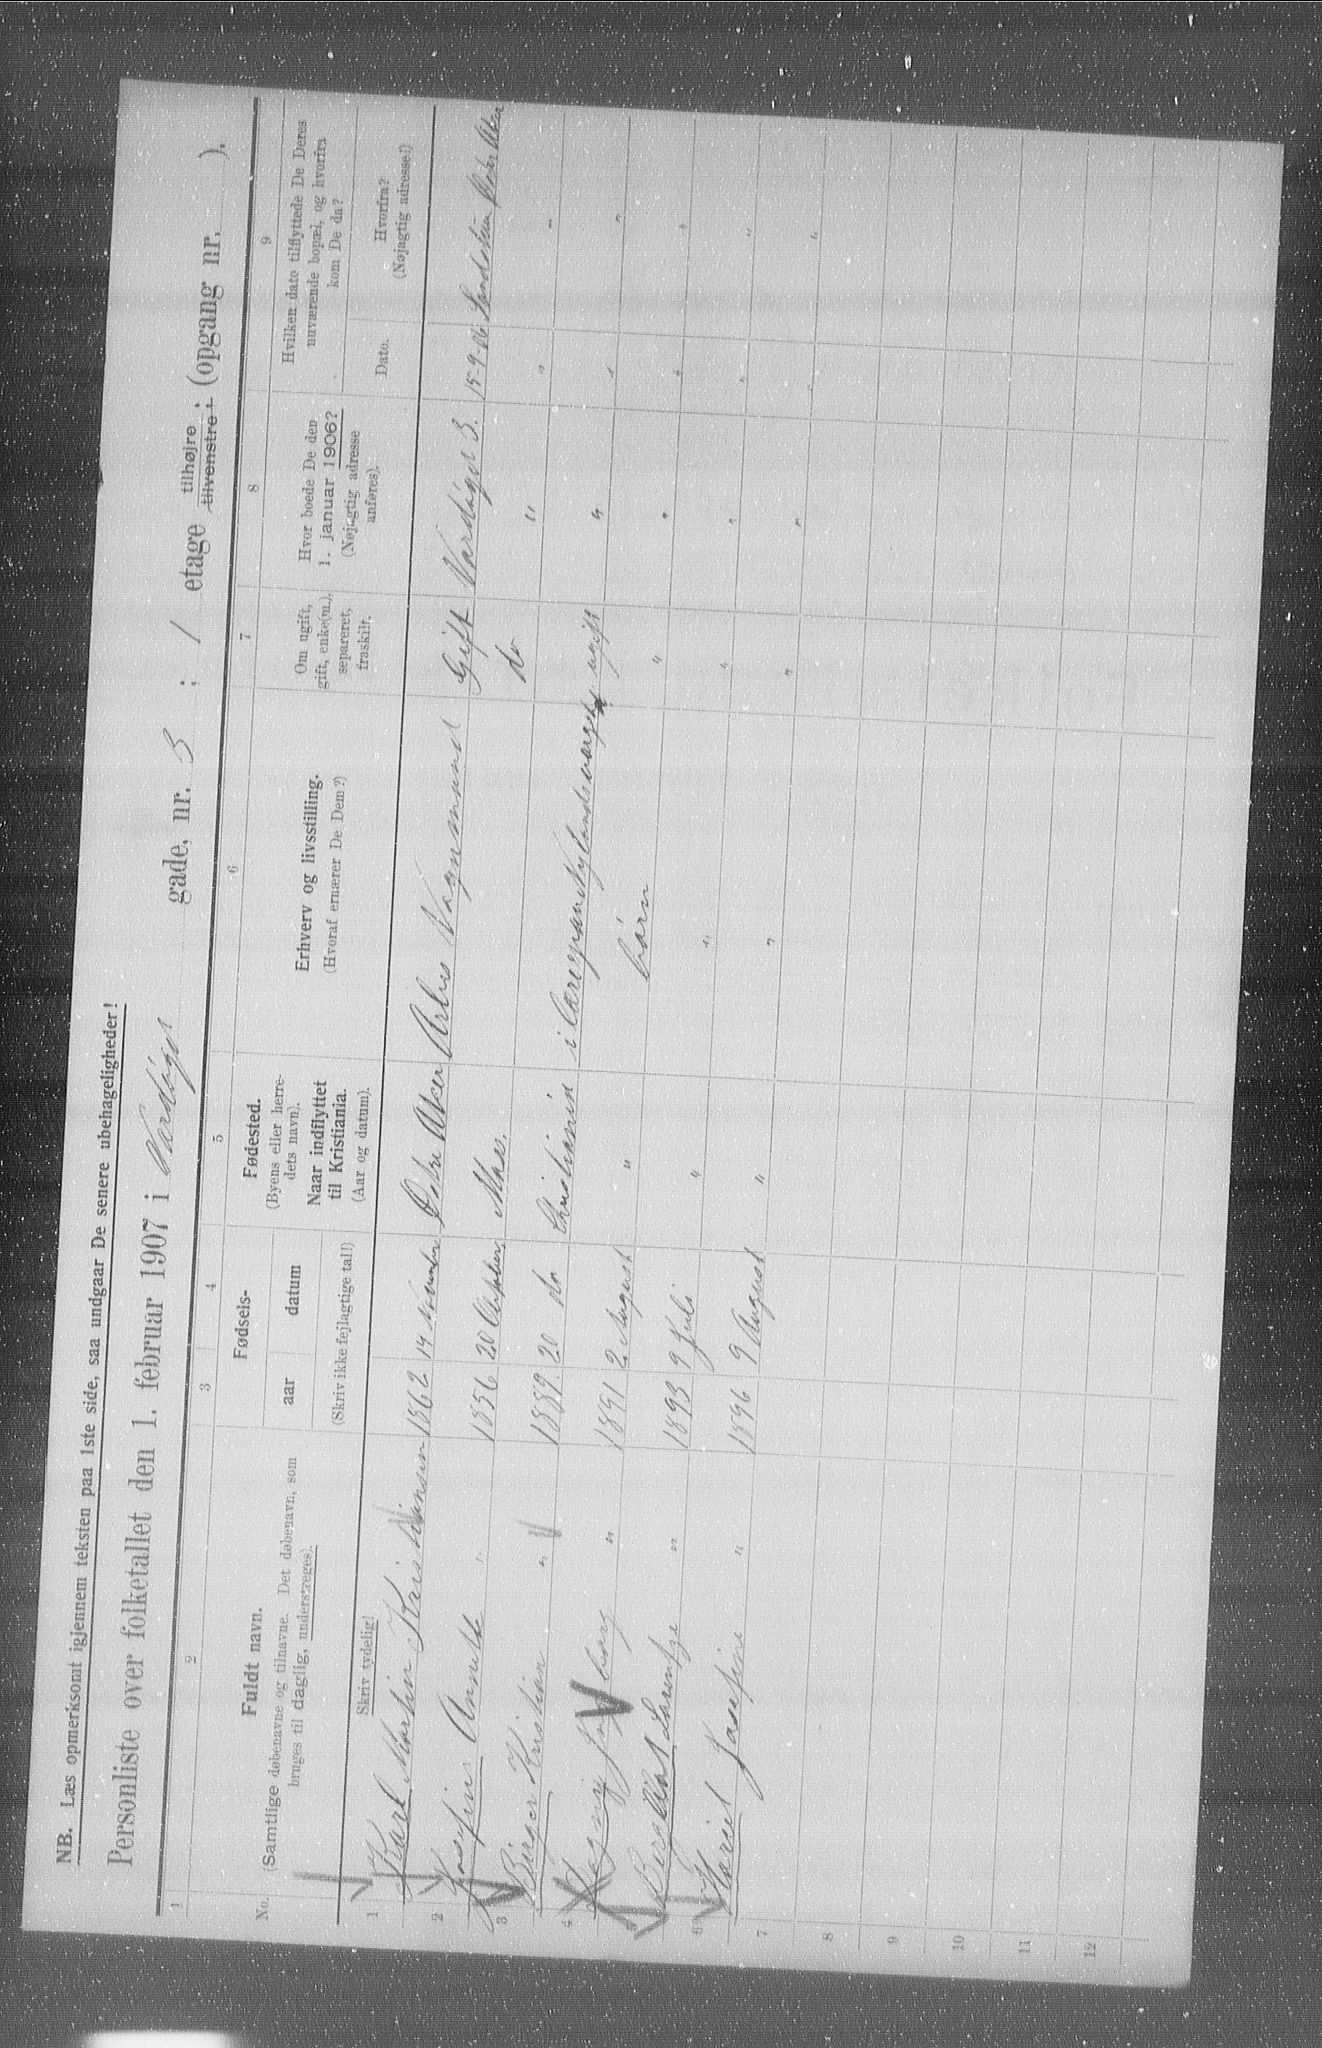 NB. Læs opmerksomt igjennem teksten paa 1ste side, saa undgaar De senere ubehageligheder!
Personliste over folketallet den 1. februar 1907 i Vardåger gade, nr. 3 ; 1 etage tilhøjre tilvenstre ; (opgang nr. ).
1 2 3 4 5 6 7 8 9
No. Fuldt navn. (Samtlige døbenavne og tilnavne. Det døbenavn, som bruges til daglig, understreges). Skriv tydelig!
Fødsels- aar datum (Skriv ikke fejlagtige tal!)
Fødested. (Byens eller herredets navn). Naar indflyttet til Kristiania. (Aar og datum).
Erhverv og livsstilling. (Hvoraf ernærer De Dem?)
Om ugift, gift, enke(m.), separeret, fraskilt.
Hvor boede De den 1. januar 1906? (Nøjagtig adresse anføres).
Hvilken dato tilflyttede De Deres nuværende bopæl, og hvorfra kom De da? Dato. Hvorfra? (Nøjagtig adresse!)
1 Karl Martin Kristiansen 1862 14 November Østre Aker Arbs Vognmand Gift Vardåger 3. 15-9-06 Østre Aker
2 Josefine Annette " 1856 20 Oktober, Moss. do " " "
3 Birger Kristian " 1889. 20 do Christiania i ugift " " "
4 Ingeborg " 1891 2 August " børn " " " "
5 Lorentze " 1893 9 Juli " " " " " "
6 Harriet Josefine " 1896 9 August " " " " " "
7
8
9
10
11
12